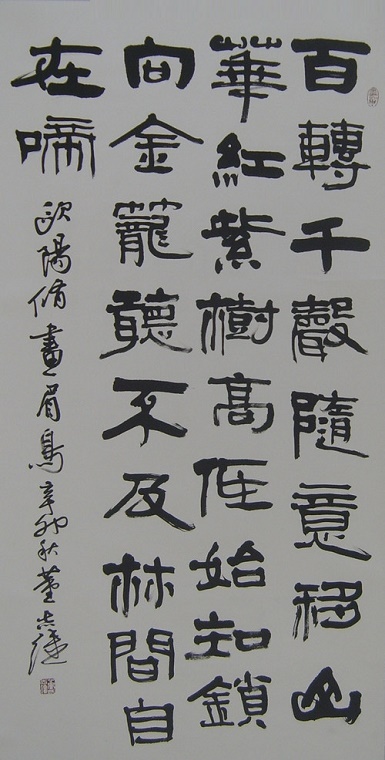 百轉千聲隨意移山
華紅紫樹高低始知鎖
向金籠聽不及林間自
在啼
歐陽脩畫眉鳥辛卯秋董志